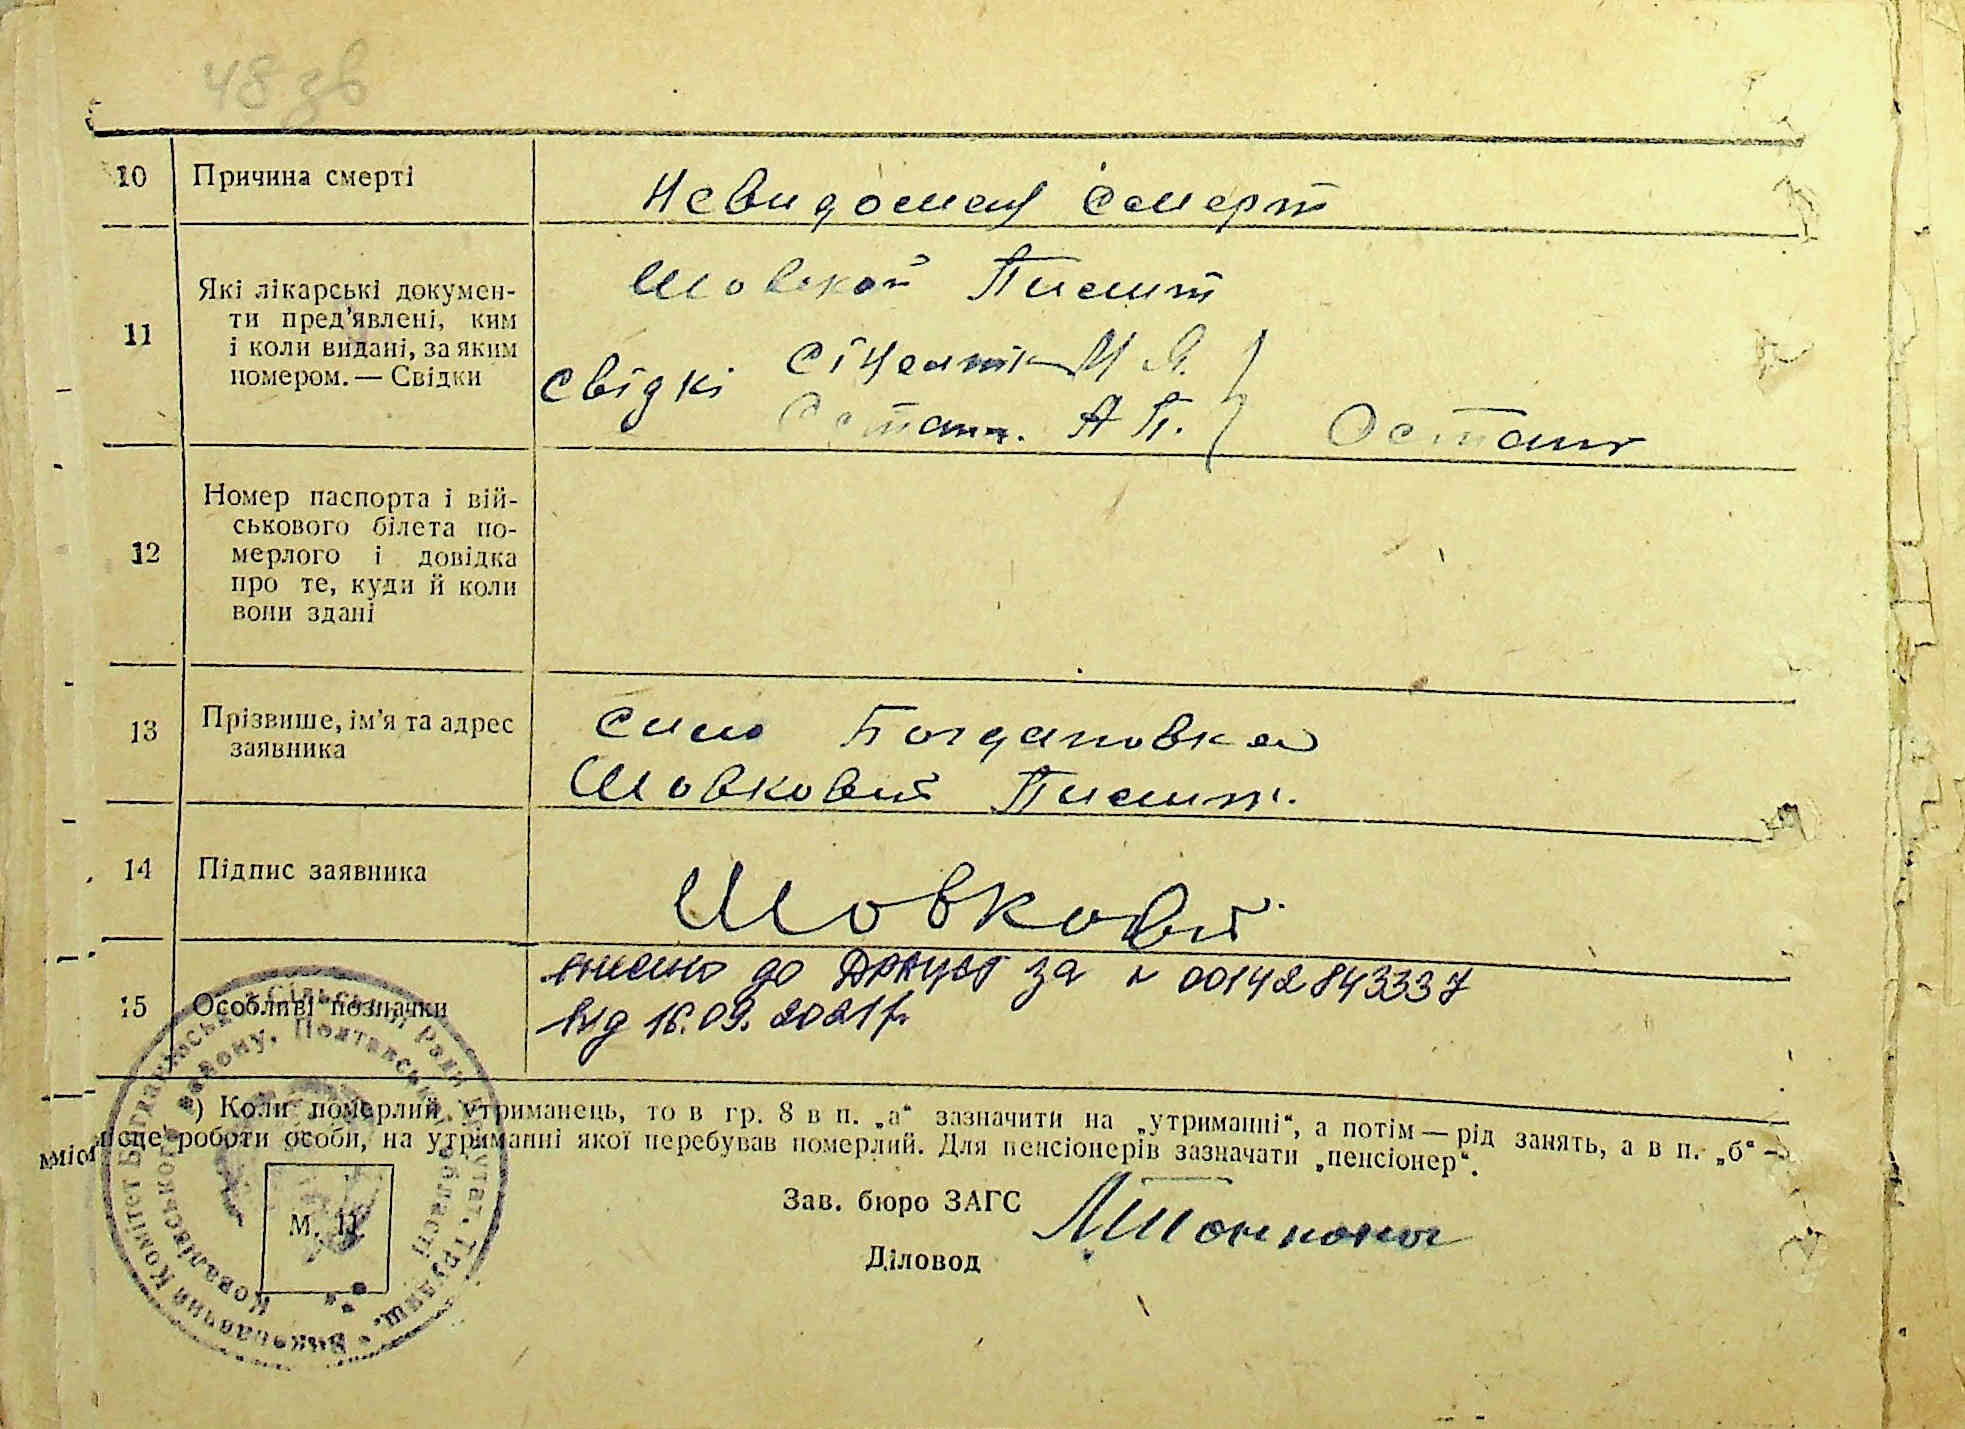 48 зв
10 Причина смерті
Невидомая смерт
11 Які лікарські докумен-
ти пред'явлені, ким
і коли видані, за яким
номером. — Свідки
Шовкой Пилип
свідкі
М Я.
А П.
12 Номер паспорта і вій-
ськового білета по-
мерлого і довідка
про те, куди й коли
вони здані
13 Прізвище, ім'я та адрес
заявника
село Богдановка
Шовковий Пилип.
14 Підпис заявника
Шовковий
15 Особливі позначки
внесено до ДРАЦСГ за № 00142843337
від 16.09.2021 р.
) Коли померлий утриманець, то в гр. 8 в п. „а“ зазначити на „утриманні“, а потім — рід занять, а в п. „б“ —
місце роботи особи, на утриманні якої перебував померлий. Для пенсіонерів зазначати „пенсіонер“.
Зав. бюро ЗАГС
Діловод
М. П.
Виконавчий Комітет Богданівської Сільської Ради Депутат. Трудящ.
Ковалівського району, Полтавської області